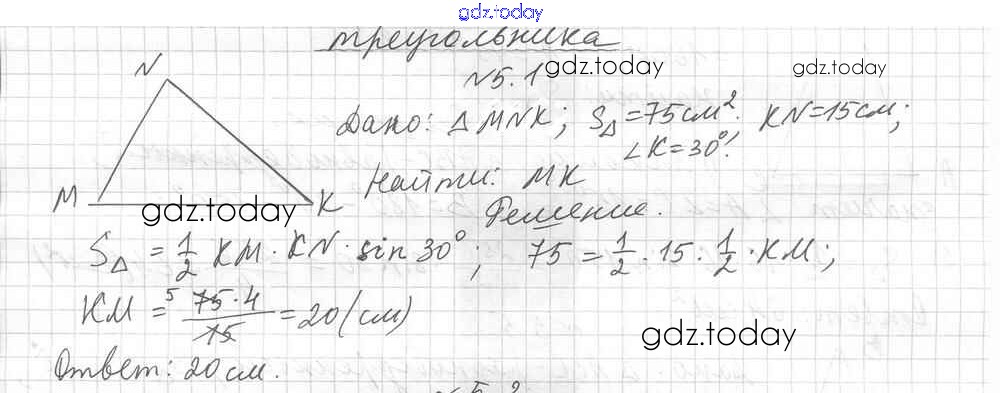 gdz.today
треугольника
№5.1
gdz.today
gdz.today
N
Дано: △MNK; S△=75см²; KN=15см;
∠K=30°.
Найти: MK
M K
gdz.today
Решение.
S△ = 1/2 KM · KN · sin 30°; 75 = 1/2 · 15 · 1/2 · KM;
KM = 5 75·4/15 = 20 (см)
gdz.today
Ответ: 20 см.